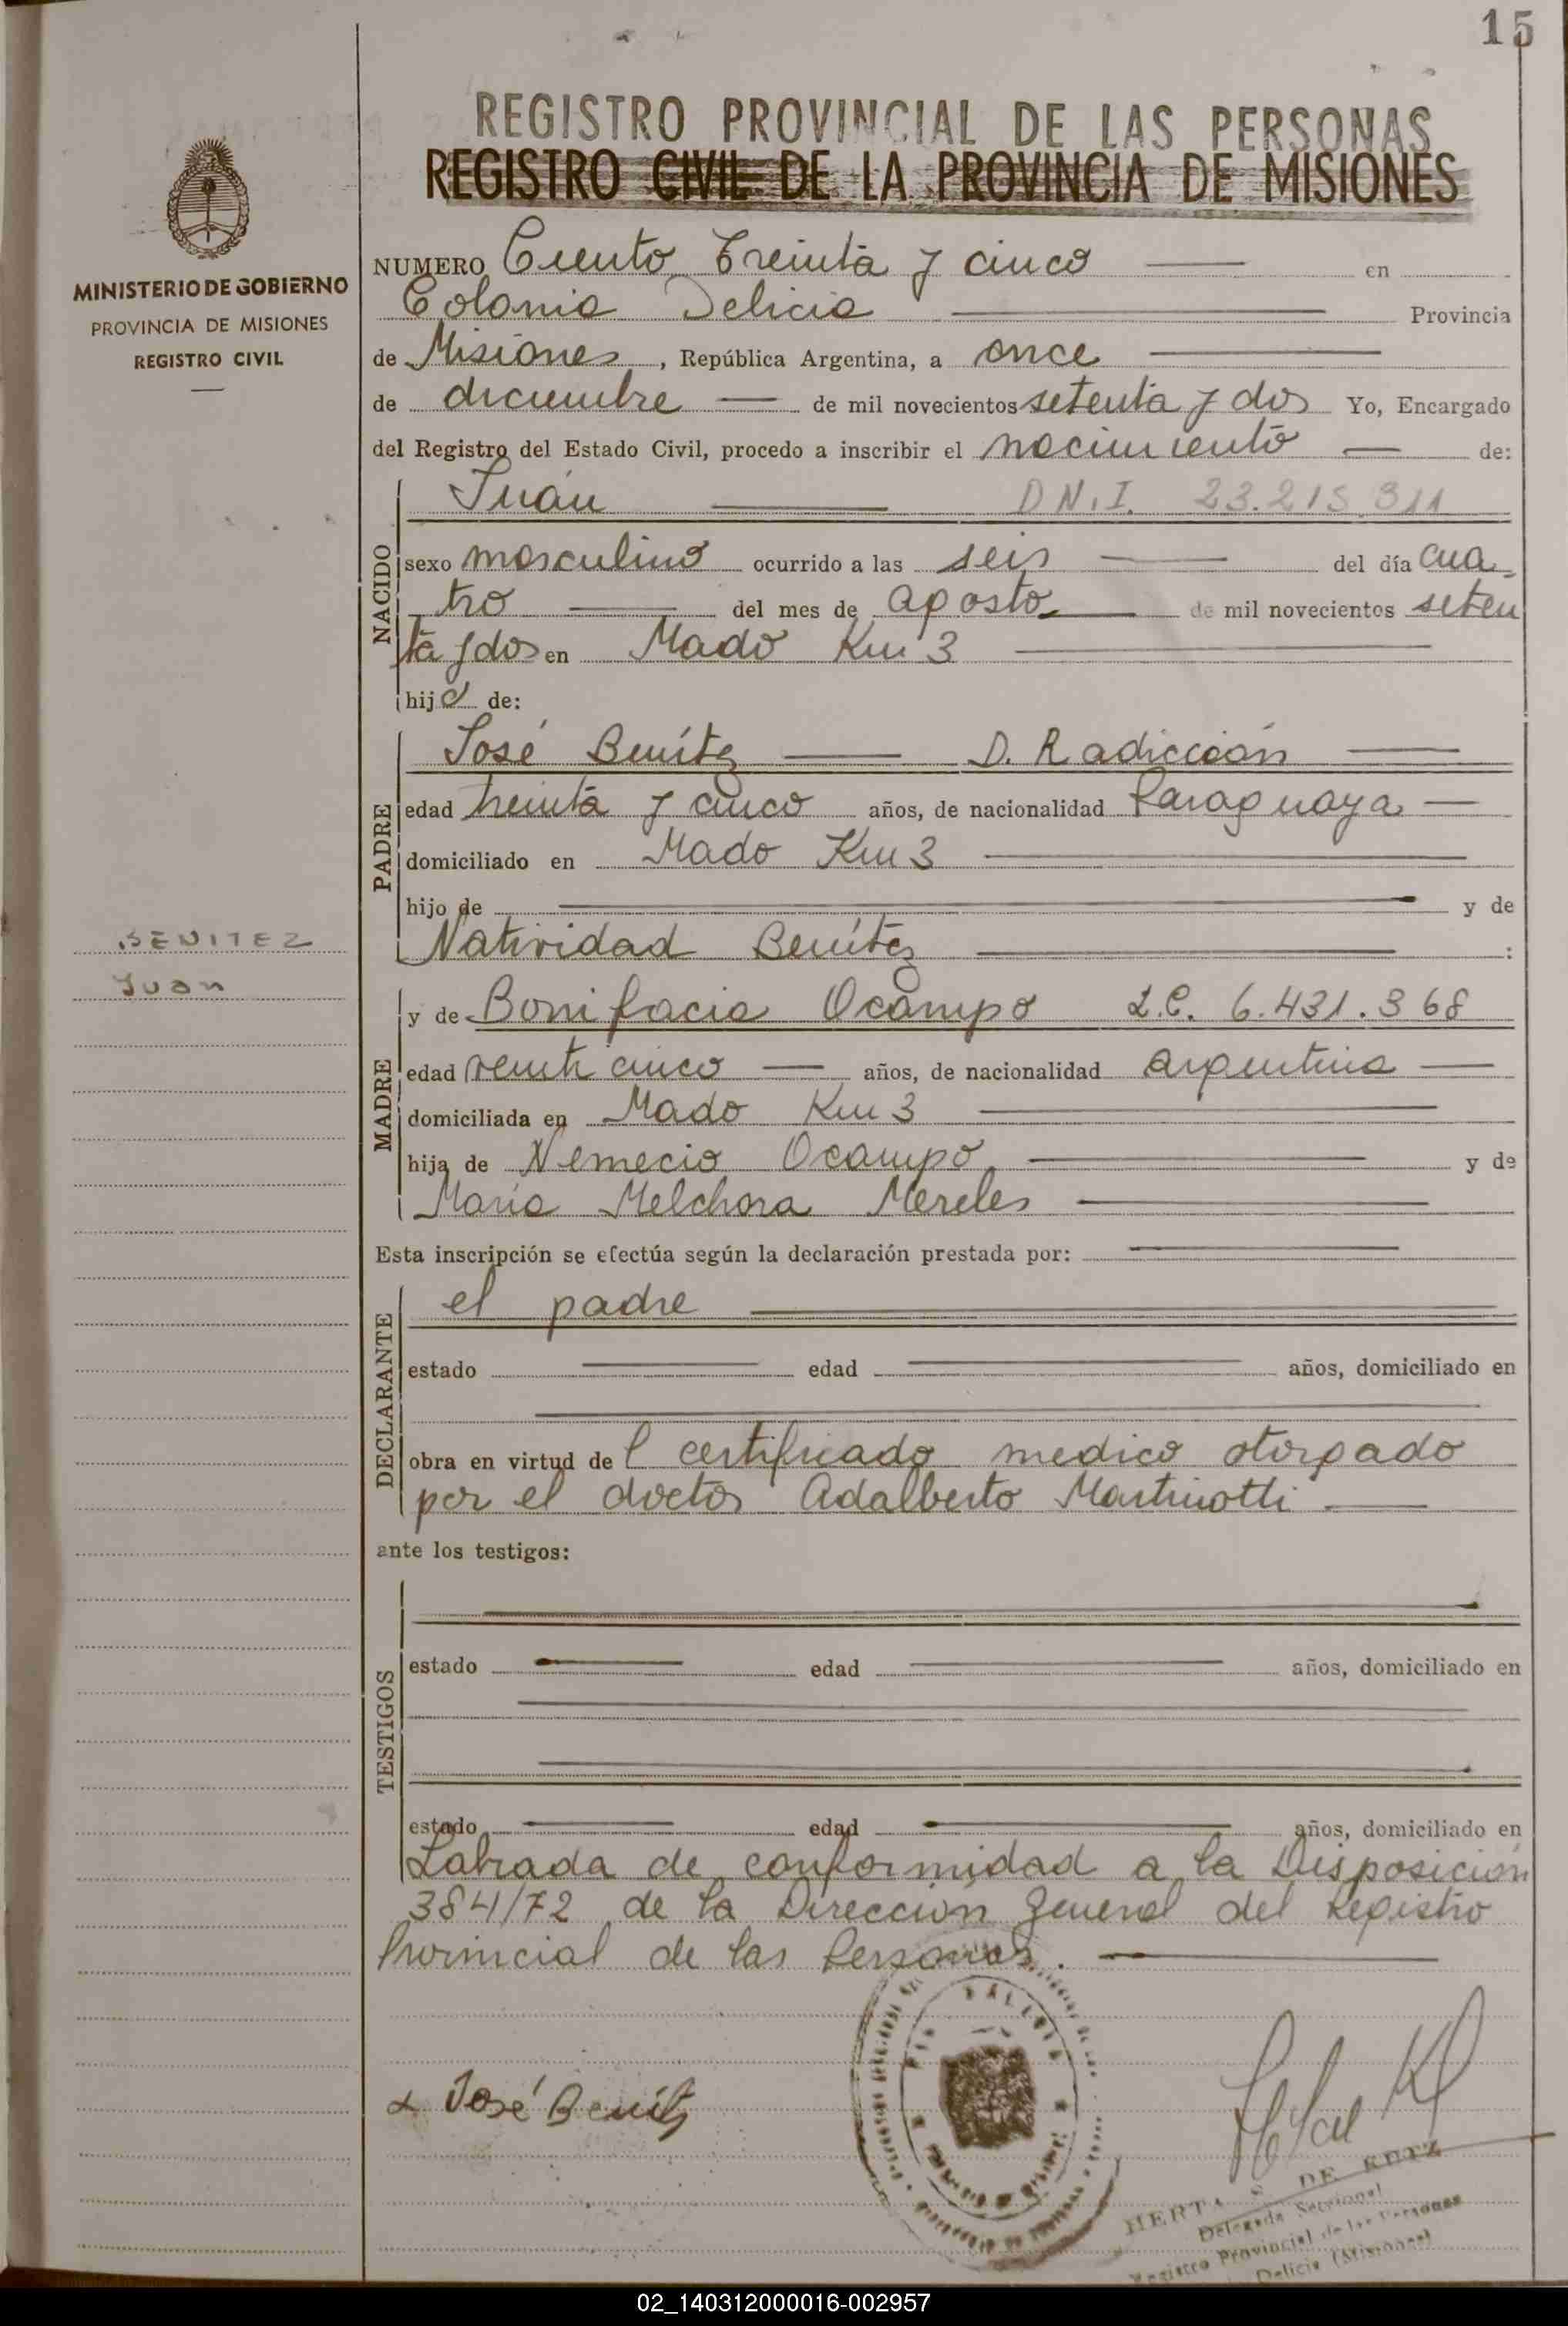 15
REGISTRO PROVINCIAL DE LAS PERSONAS
REGISTRO CIVIL DE LA PROVINCIA DE MISIONES
MINISTERIO DE GOBIERNO
PROVINCIA DE MISIONES
REGISTRO CIVIL
NUMERO Ciento Treinta y cinco en
Colonia Delicia Provincia
de Misiones, República Argentina, a once
de diciembre de mil novecientos setenta y dos Yo, Encargado
del Registro del Estado Civil, procedo a inscribir el nacimiento de:
NACIDO
Juan D.N.I. 23.215.311
sexo masculino ocurrido a las seis del día cua-
tro del mes de agosto de mil novecientos seten
ta y dos en Mado Km 3
hijo de:
PADRE
José Benítez D. Radicción
edad treinta y cinco años, de nacionalidad Paraguaya
domiciliado en Mado Km 3
hijo de y de
Natividad Benítez :
BENITEZ
Juan
MADRE
y de Bonifacia Ocampo L.C. 6.431.368
edad veinti cinco años, de nacionalidad argentina
domiciliada en Mado Km 3
hija de Nemecio Ocampo y de
María Melchora Mereles
Esta inscripción se efectúa según la declaración prestada por:
DECLARANTE
el padre
estado edad años, domiciliado en
obra en virtud del certificado medico otorgado
por el doctor Adalberto Martinotti
ante los testigos:
TESTIGOS
estado edad años, domiciliado en
estado edad años, domiciliado en
Labrada de conformidad a la Disposición
384/72 de la Dirección General del Registro
Provincial de las Personas.
José Benítez
HERTA S. DE RETZ
Delegada Seccional
Registro Provincial de las Personas
Delicia (Misiones)
02_140312000016-002957